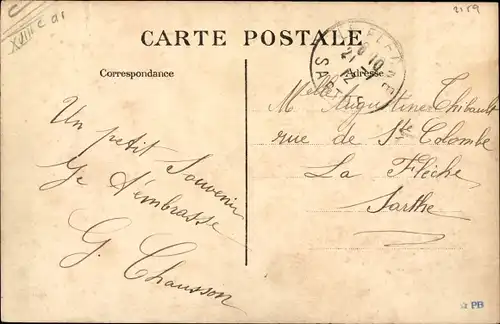 XVIII C d1
2159
CARTE POSTALE
Correspondance
Adresse
Un petit Souvenir
Je t'embrasse
G. Chausson
Melle Augustine Thibault
rue de Ste Colombe
La Flèche
Sarthe
PB